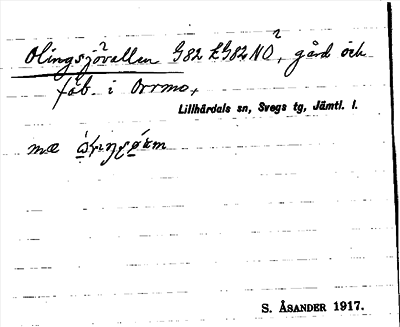 Olingsjövallen G82 LG82NO², gård och
fäb. i Orrmo,
Lillhärdals sn, Svegs tg, Jämtl. l.
mæ
S. ÅSANDER 1917.